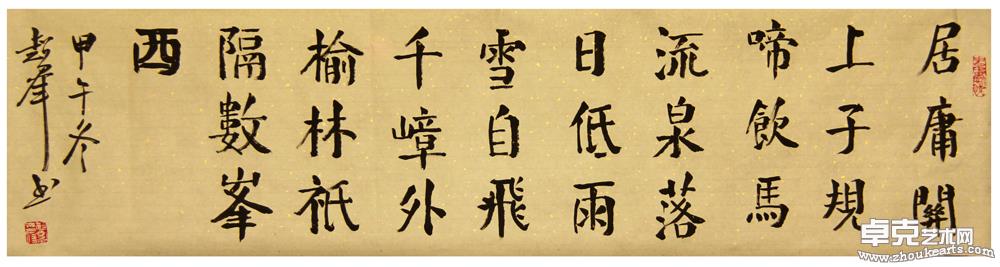 居庸關
上子規
啼飲馬
流泉落
日低雨
雪自飛
千嶂外
榆林祇
隔數峯
西
甲午冬
峯书
卓克艺术网
www.zhoukearts.com